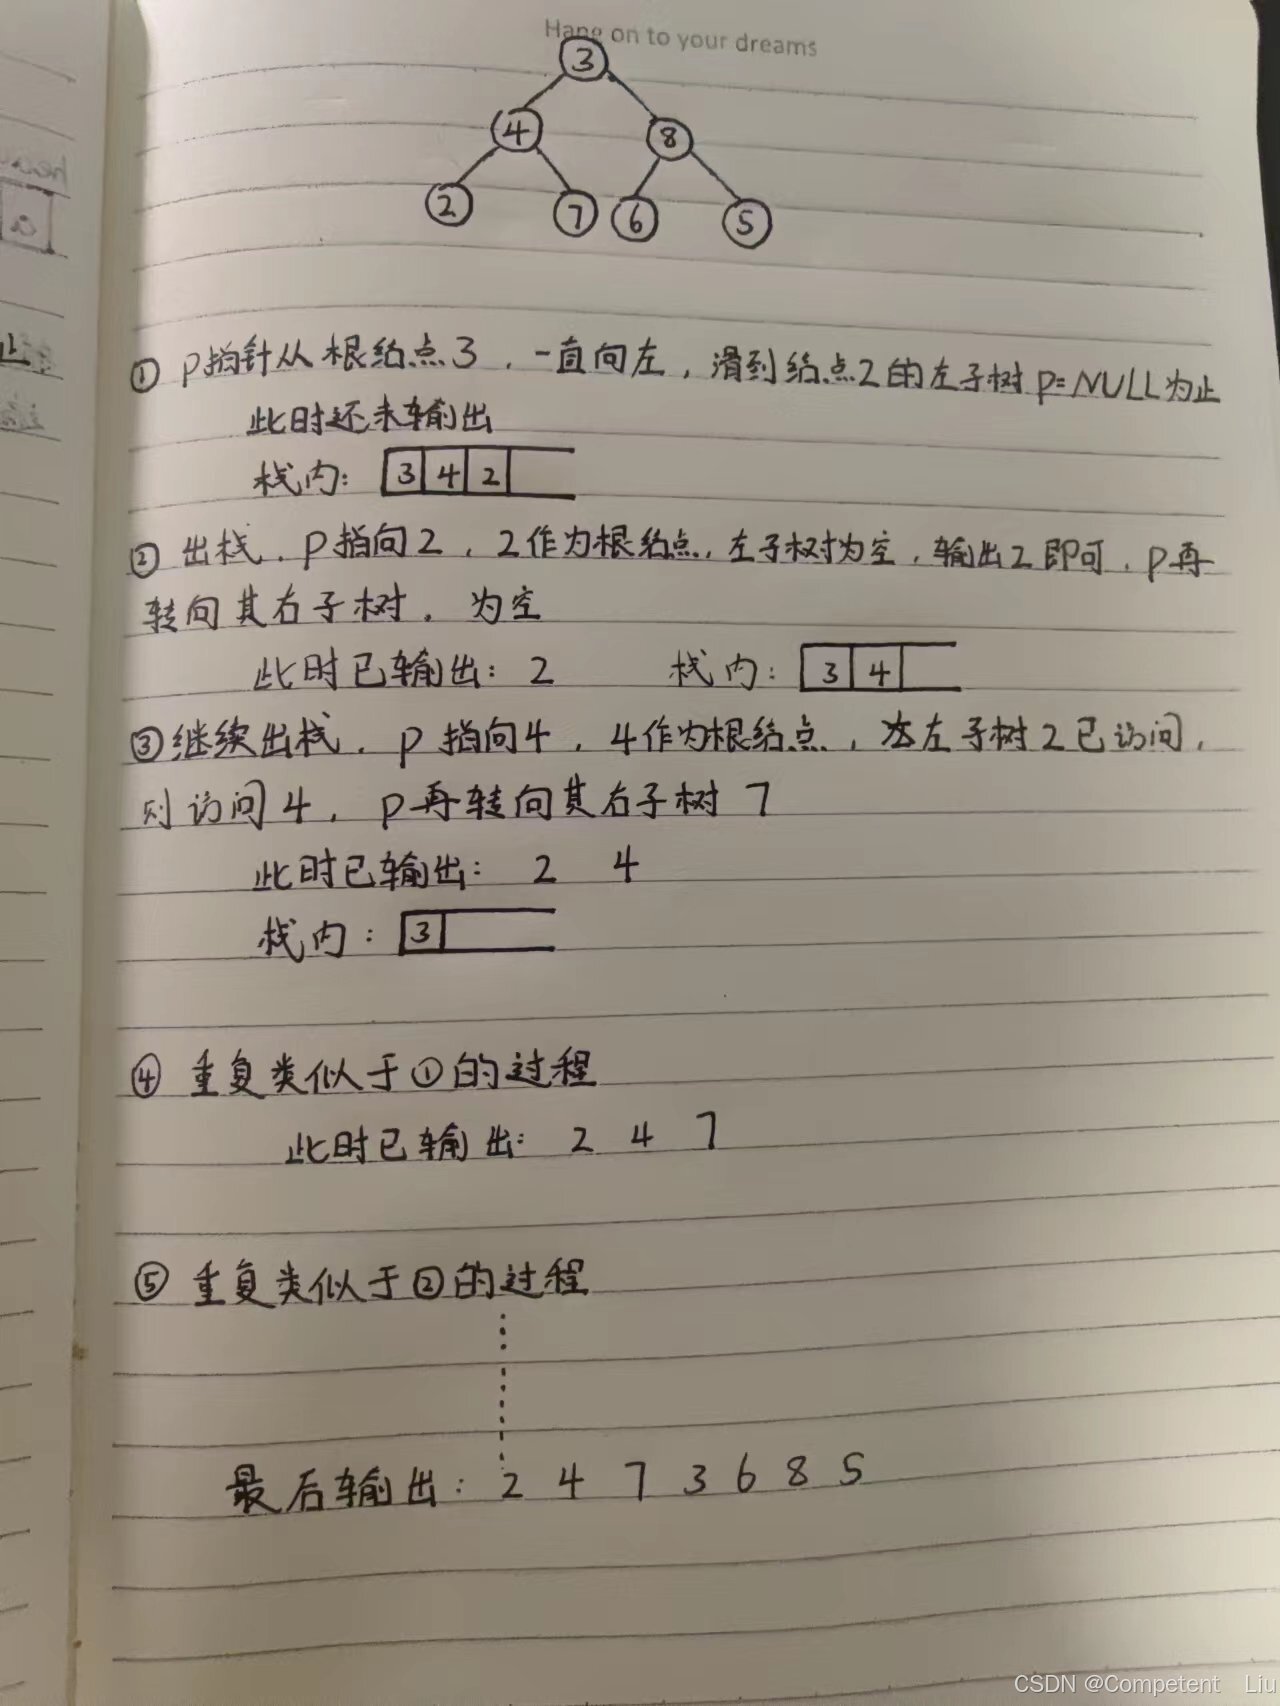 Hang on to your dreams
3
4 8
2 7 6 5
① P指针从根结点3，一直向左，滑到结点2的左子树P=NULL为止
此时还未输出
栈内： 3 4 2
② 出栈．P指向2，2作为根结点，左子树为空，输出2即可．P再
转向其右子树．为空
此时已输出：2 栈内： 3 4
③ 继续出栈．P指向4，4作为根结点，左子树2已访问，
则访问4．P再转向其右子树7
此时已输出： 2 4
栈内： 3
④ 重复类似于①的过程
此时已输出： 2 4 7
⑤ 重复类似于②的过程
最后输出： 2 4 7 3 6 8 5
CSDN @Competent Liu